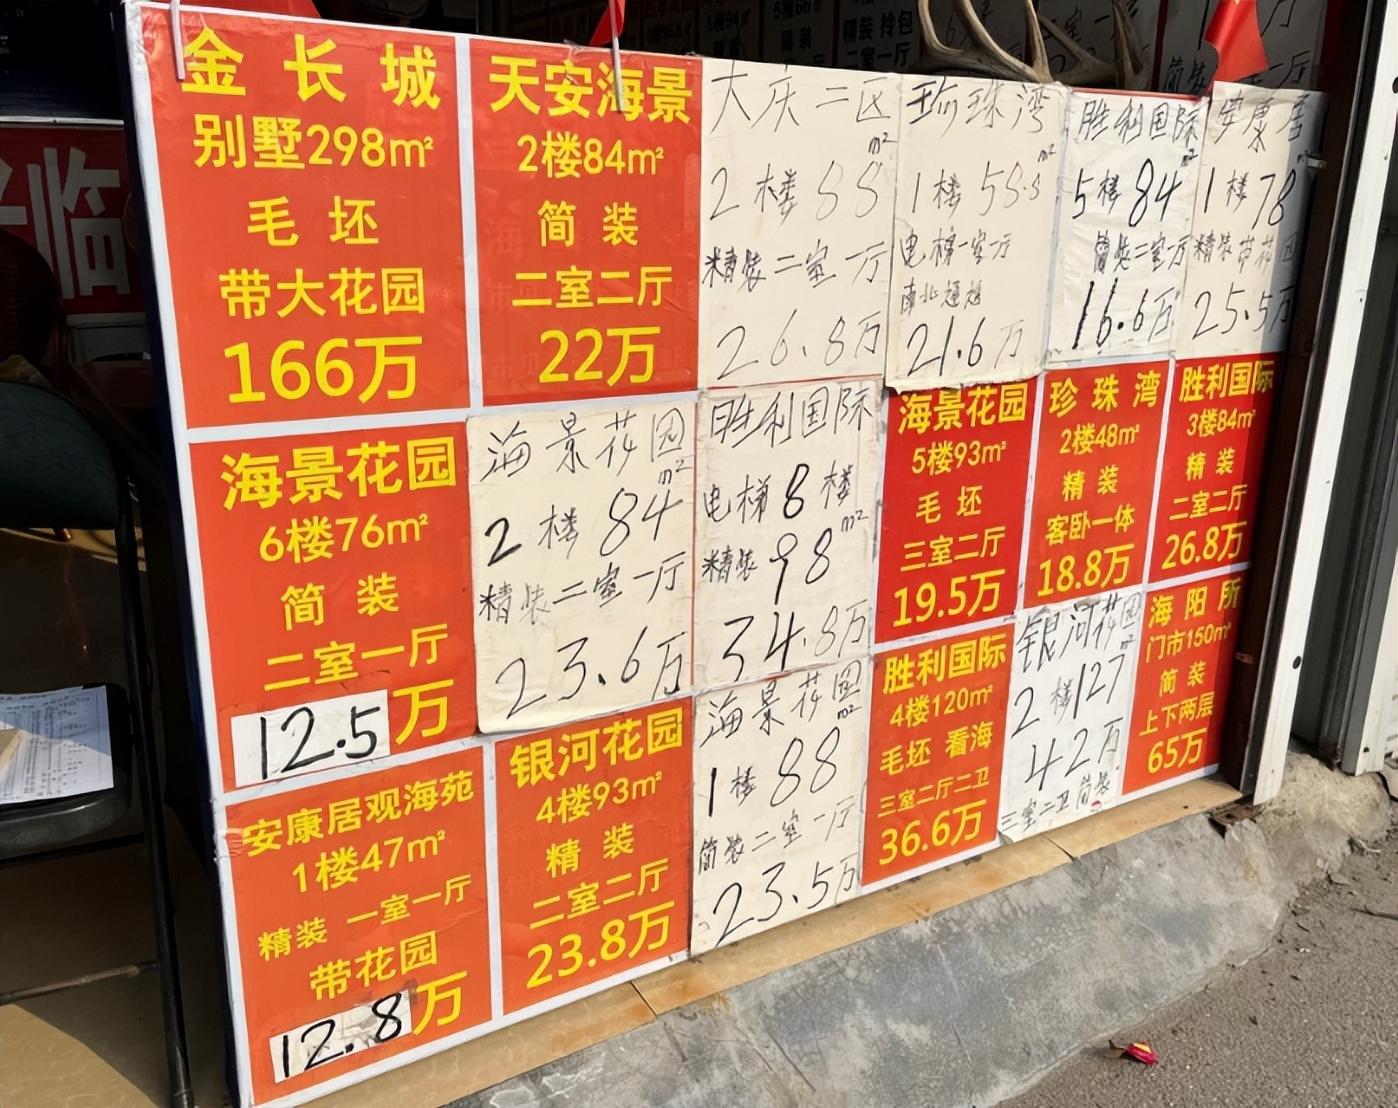 金长城
别墅298m²
毛坯
带大花园
166万
天安海景
2楼84m²
简装
二室二厅
22万
大庆二区
2楼88m²
精装二室一厅
26.8万
珍珠湾
1楼58.8m²
电梯一室一厅
南北通透
21.6万
胜利国际
5楼84m²
简装二室一厅
16.6万
安康居
1楼78m²
精装带花园
25.5万
海景花园
6楼76m²
简装
二室一厅
12.5万
海景花园
2楼84m²
精装二室一厅
23.6万
胜利国际
电梯8楼
精装98m²
34.8万
海景花园
5楼93m²
毛坯
三室二厅
19.5万
珍珠湾
2楼48m²
精装
客卧一体
18.8万
胜利国际
3楼84m²
精装
二室二厅
26.8万
安康居观海苑
1楼47m²
精装 一室一厅
带花园
12.8万
银河花园
4楼93m²
精装
二室二厅
23.8万
海景花园
1楼88m²
简装二室一厅
23.5万
胜利国际
4楼120m²
毛坯 看海
三室二厅二卫
36.6万
银河花园
2楼127m²
42万
三室二卫简装
海阳所
门市150m²
简装
上下两层
65万
临